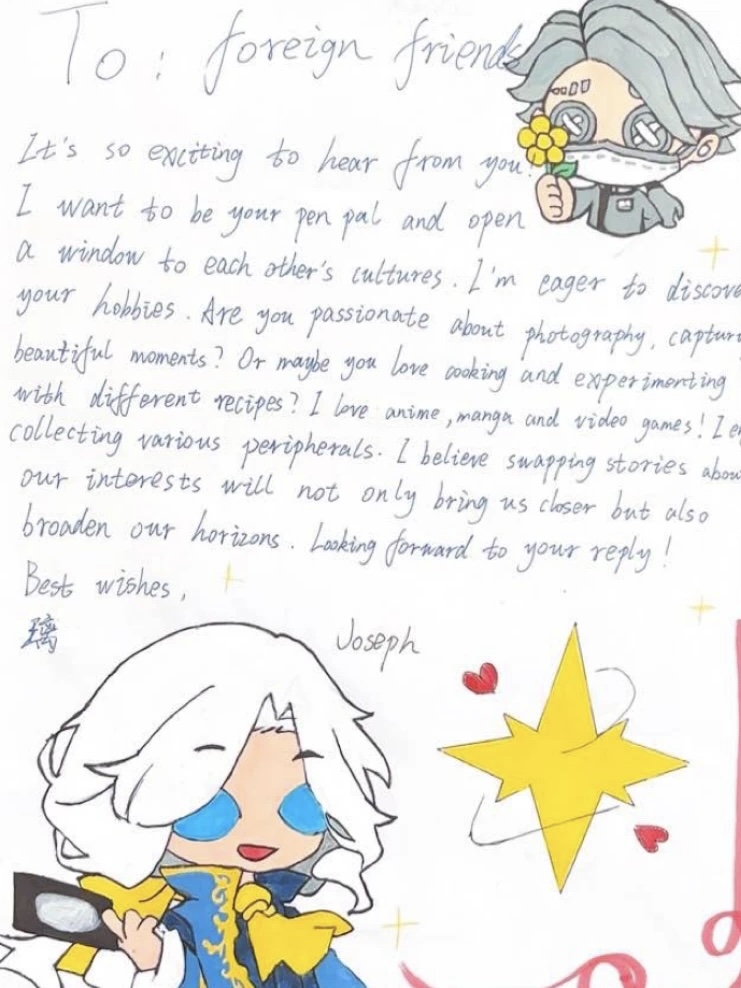 To: foreign friends
It's so exciting to hear from you!
I want to be your pen pal and open
a window to each other's cultures. I'm eager to discove
your hobbies. Are you passionate about photography, captur
beautiful moments? Or maybe you love cooking and experimenting
with different recipes? I love anime, manga and video games! I e
collecting various peripherals. I believe swapping stories abou
our interests will not only bring us closer but also
broaden our horizons. Looking forward to your reply!
Best wishes,
璃 Joseph